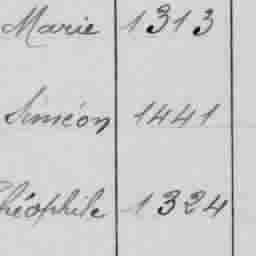 Marie 1313
Siméon 1441
Théophile 1324